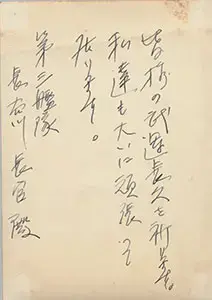 皆様の武運長久を祈ります。
私達も大いに頑張って
居ります。
第二艦隊
長谷川長官殿